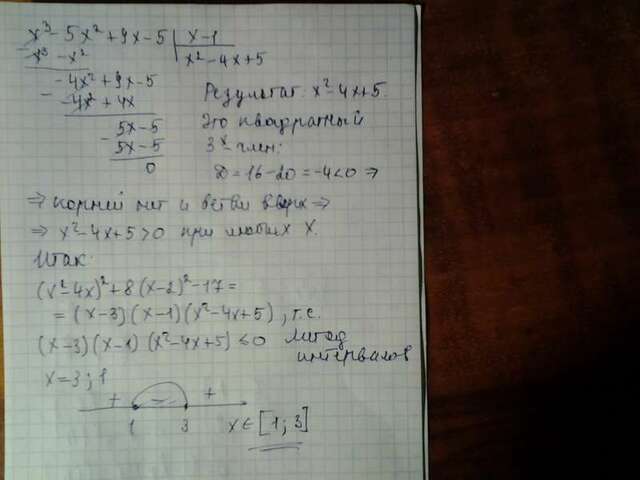 x³ - 5x² + 9x - 5 | x - 1
x³ - x² | x² - 4x + 5
- 4x² + 9x - 5
- 4x² + 4x
5x - 5
5x - 5
0
Результат: x² - 4x + 5.
Это квадратный
3х член:
D = 16 - 20 = -4 < 0 ⇒
⇒ корней нет и ветви вверх ⇒
⇒ x² - 4x + 5 > 0 при любых x.
Итак:
(x² - 4x)² + 8(x - 2)² - 17 =
= (x - 3)(x - 1)(x² - 4x + 5), т.е.
(x - 3)(x - 1)(x² - 4x + 5) ≤ 0 Метод
интервалов
x = 3; 1
+ - +
1 3 x ∈ [1; 3]